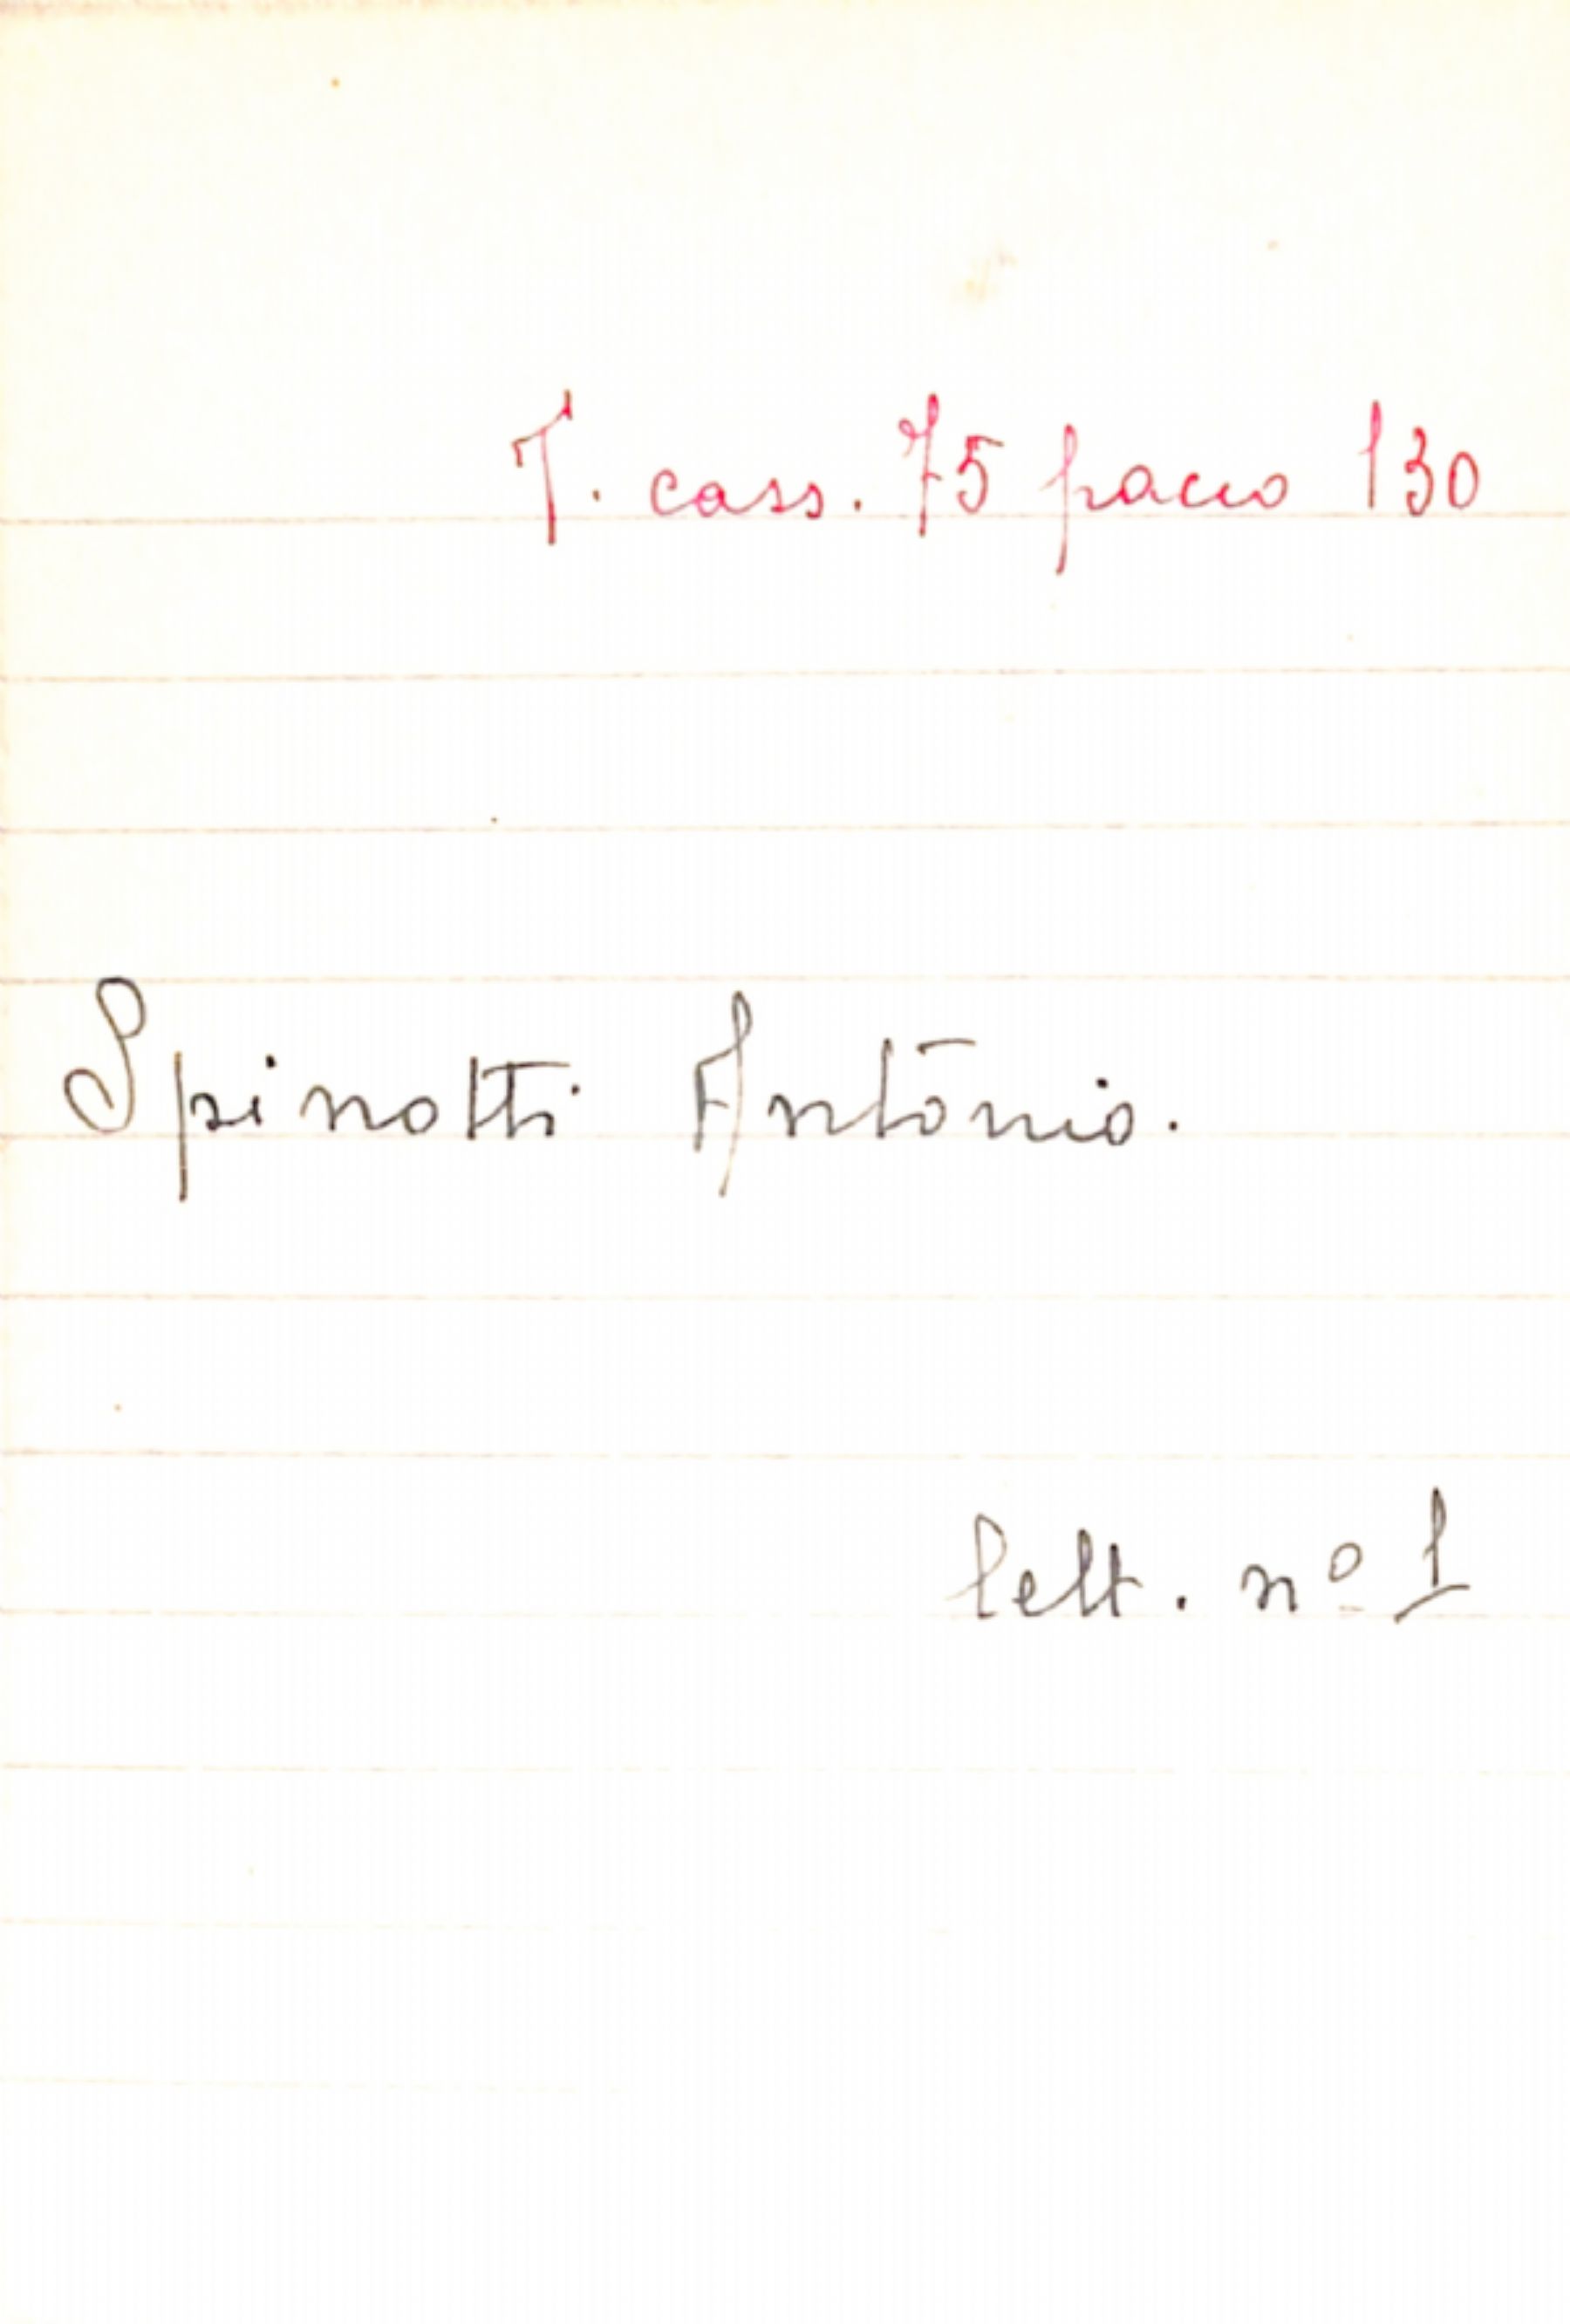 T. cass. 75 pacco 130
Spinotti Antonio.
lett. nº 1